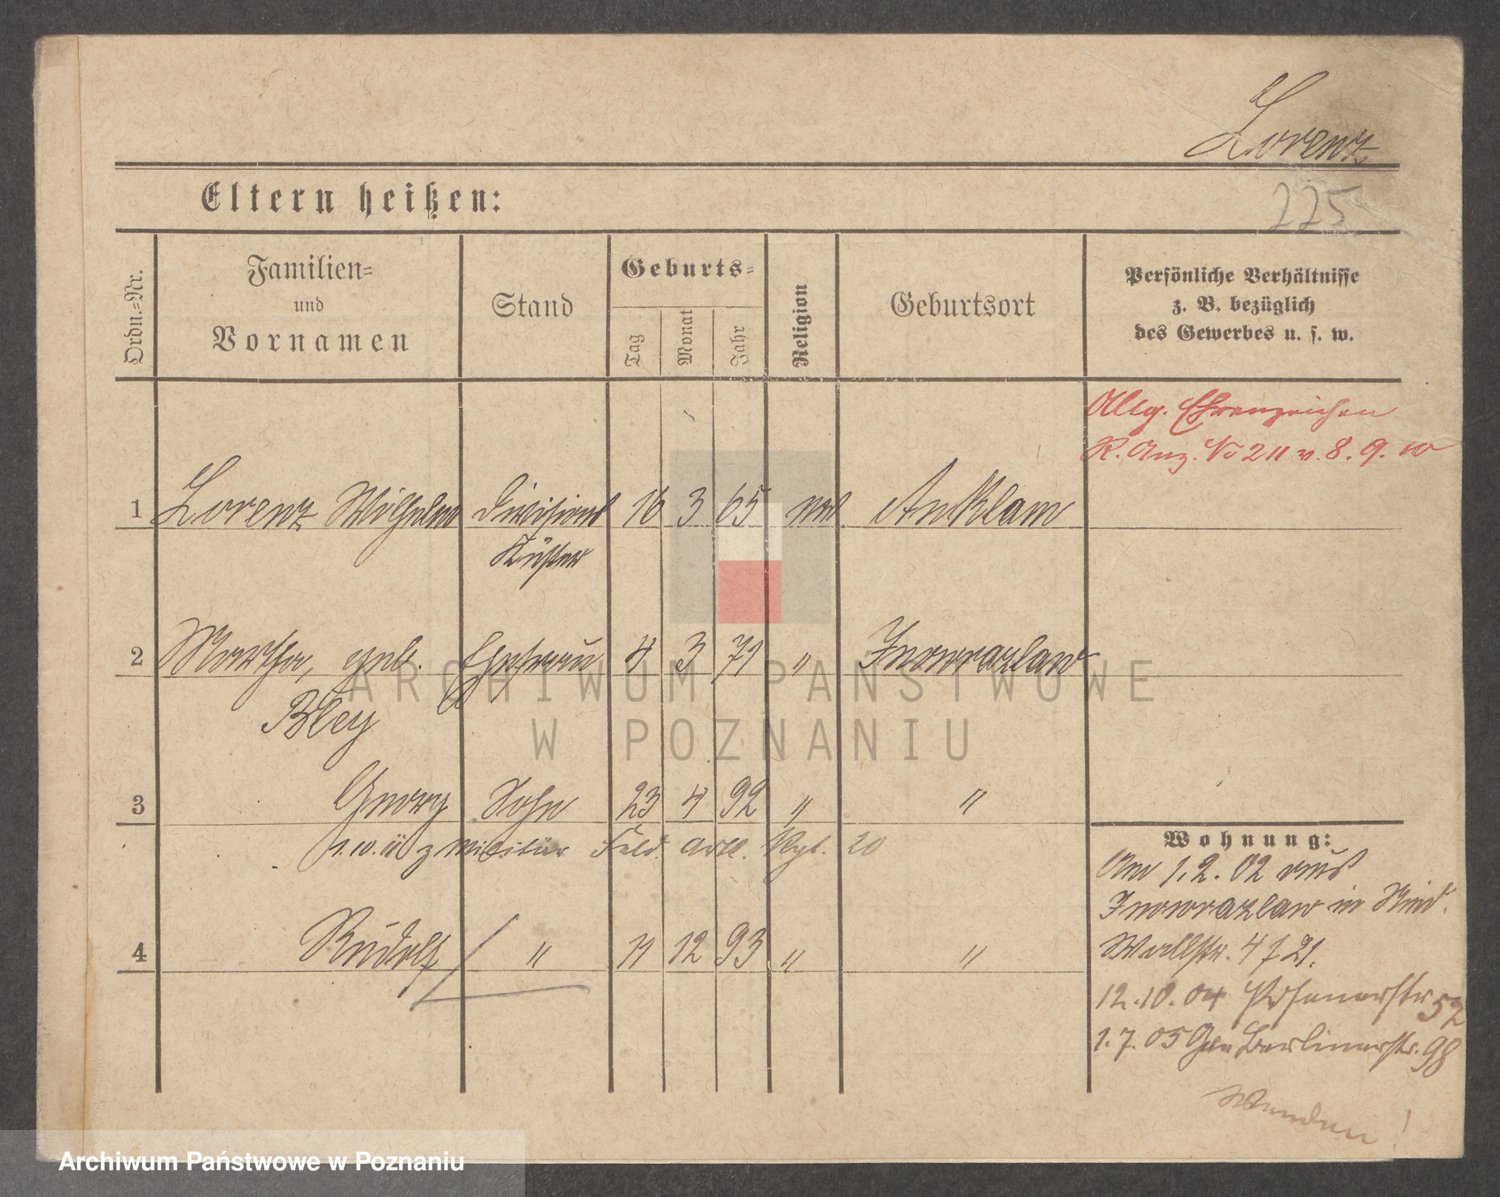 Lorenz
225
Eltern heißen:
Ordn.-Nr.
Familien- und Vornamen
Stand
Geburts-
Tag
Monat
Jahr
Religion
Geburtsort
Persönliche Verhältnisse
z. B. bezüglich
des Gewerbes u. s. w.
Allg. Ehrenzeichen
R. Anz. No 211 v. 8. 9. 10
1 Lorenz Wilhelm Divisions 16 3 65 ev. Anklam
Küster
2 Martha, geb. Ehefrau 4 3 71 " Inowrazlaw
Bley
3 Georg Sohn 23 4 92 " "
z. Militär Feld. Art. Rgt. 20
4 Rudolf " 11 12 93 " "
Wohnung:
Am 1.2.02 aus
Inowrazlaw in
Wallstr. 4
12.10.04 Posenerstr 52
1.7.05 Berlinerstr. 98
Wenden!
ARCHIWUM PAŃSTWOWE
W POZNANIU
Archiwum Państwowe w Poznaniu